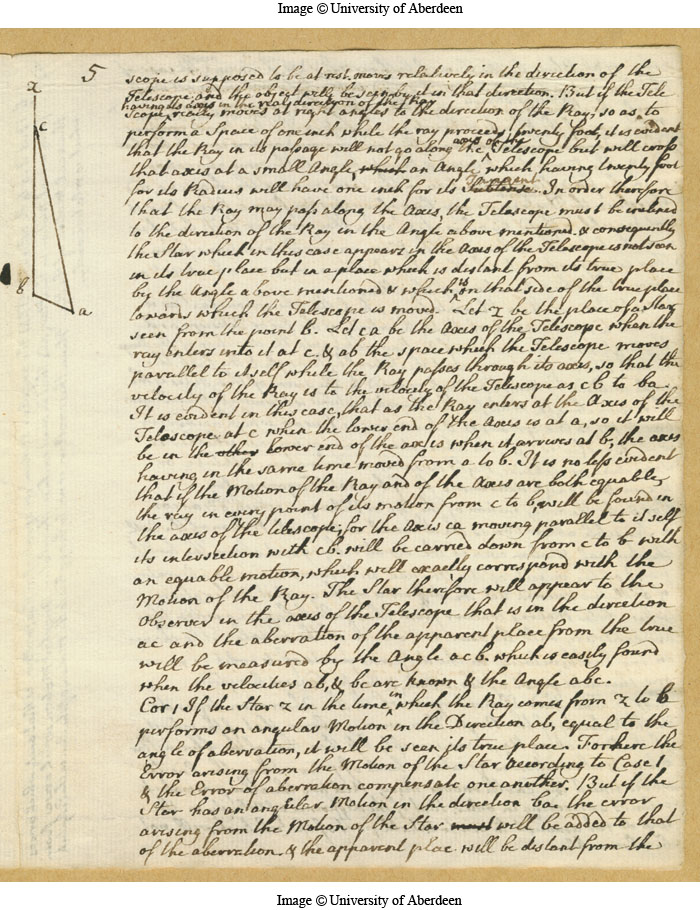 Image © University of Aberdeen
5
z
c
b
a
scope is supposed to be at rest. moves relatively in the direction of the
Telescope and the object will be seen by it in that direction. But if the Tele
having its axis in the real direction of the Ray
scope, really moves at right angles to the direction of the Ray, so as to
perform a Space of one inch while the ray proceeds twenty foot, it is evident
that the Ray in its passage will not go along the axis of the Telescope but will cross
that axis at a small Angle, which an Angle which having twenty foot
for its Radius will have one inch for its Subtense. Tangent In order therefore
that the Ray may pass along the Axis, the Telescope must be inclined
to the direction of the Ray in the Angle above mentioned. & consequently
the Star which in this case appears in the Axis of the Telescope is not seen
in its true place but in a place which is distant from its true place
by the Angle above mentioned & which is in that side of the true place
towards which the Telescope is moved. Let z be the place of a Star
seen from the point b. Let ca be the Axis of the Telescope when the
ray enters into it at c. & ab the space which the Telescope moves
parallel to itself while the Ray passes through its axis, so that the
velocity of the Ray is to the velocity of the Telescope as cb to ba.
It is evident in this case, that as the Ray enters at the Axis of the
Telescope at c when the lower end of the Axis is at a, so it will
be in the other lower end of the axis when it arrives at b, the axis
having in the same time moved from a to b. It is no less evident
that if the Motion of the Ray and of the Axis are both equable,
the ray in every point of its motion from c to b, will be found in
the axis of the telescope; for the Axis ca moving parallel to it self
its intersection with cb. will be carried down from c to b with
an equable motion, which will exactly correspond with the
Motion of the Ray. The Star therefore will appear to the
Observer in the axis of the Telescope that is in the direction
ac and the aberration of the apparent place from the true
will be measured by the Angle acb. which is easily found
when the velocities ab, & bc are known & the Angle abc.
Cor 1 If the Star z in the time in which the Ray comes from z to b
performs an angular Motion in the Direction ab, equal to the
angle of aberration, it will be seen its true place. For here the
Error arising from the Motion of the Star according to Case 1
& the Error of aberration compensate one another. But if the
Star has an angular Motion in the direction ba the error
arising from the Motion of the Star must will be added to that
of the aberration. & the apparent plac will be distant from the
Image © University of Aberdeen